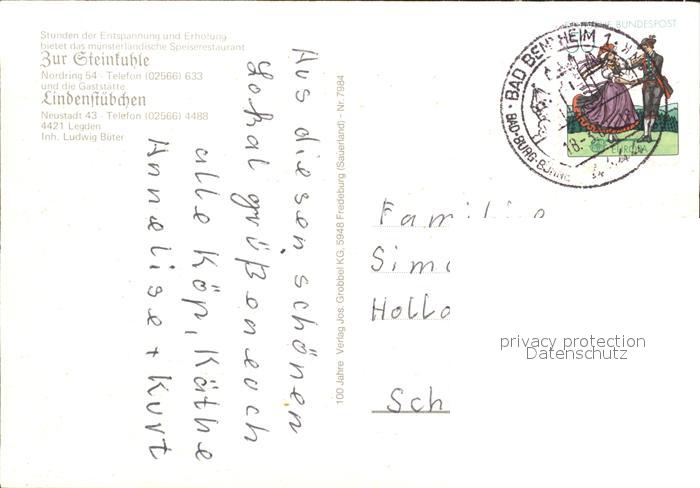 Stunden der Entspannung und Erholung
bietet das münsterländische Speiserestaurant
Zur Steinkuhle
Nordring 54 - Telefon (02566) 633
und die Gaststätte
Lindenstübchen
Neustadt 43 - Telefon (02566) 4488
4421 Legden
Inh. Ludwig Büter
Aus diesen schönen
Lokal grüßen euch
alle Köp, Käthe
Annelise + Kurt
100 Jahre Verlag Jos. Grobbel KG, 5948 Fredeburg (Sauerland) - Nr. 7984
BUNDESPOST
EUROPA
BAD BENTHEIM 1
BAD·BURG·BÜHNE
18.-5
Familie
Sim
Hollo
Sch
privacy protection
Datenschutz